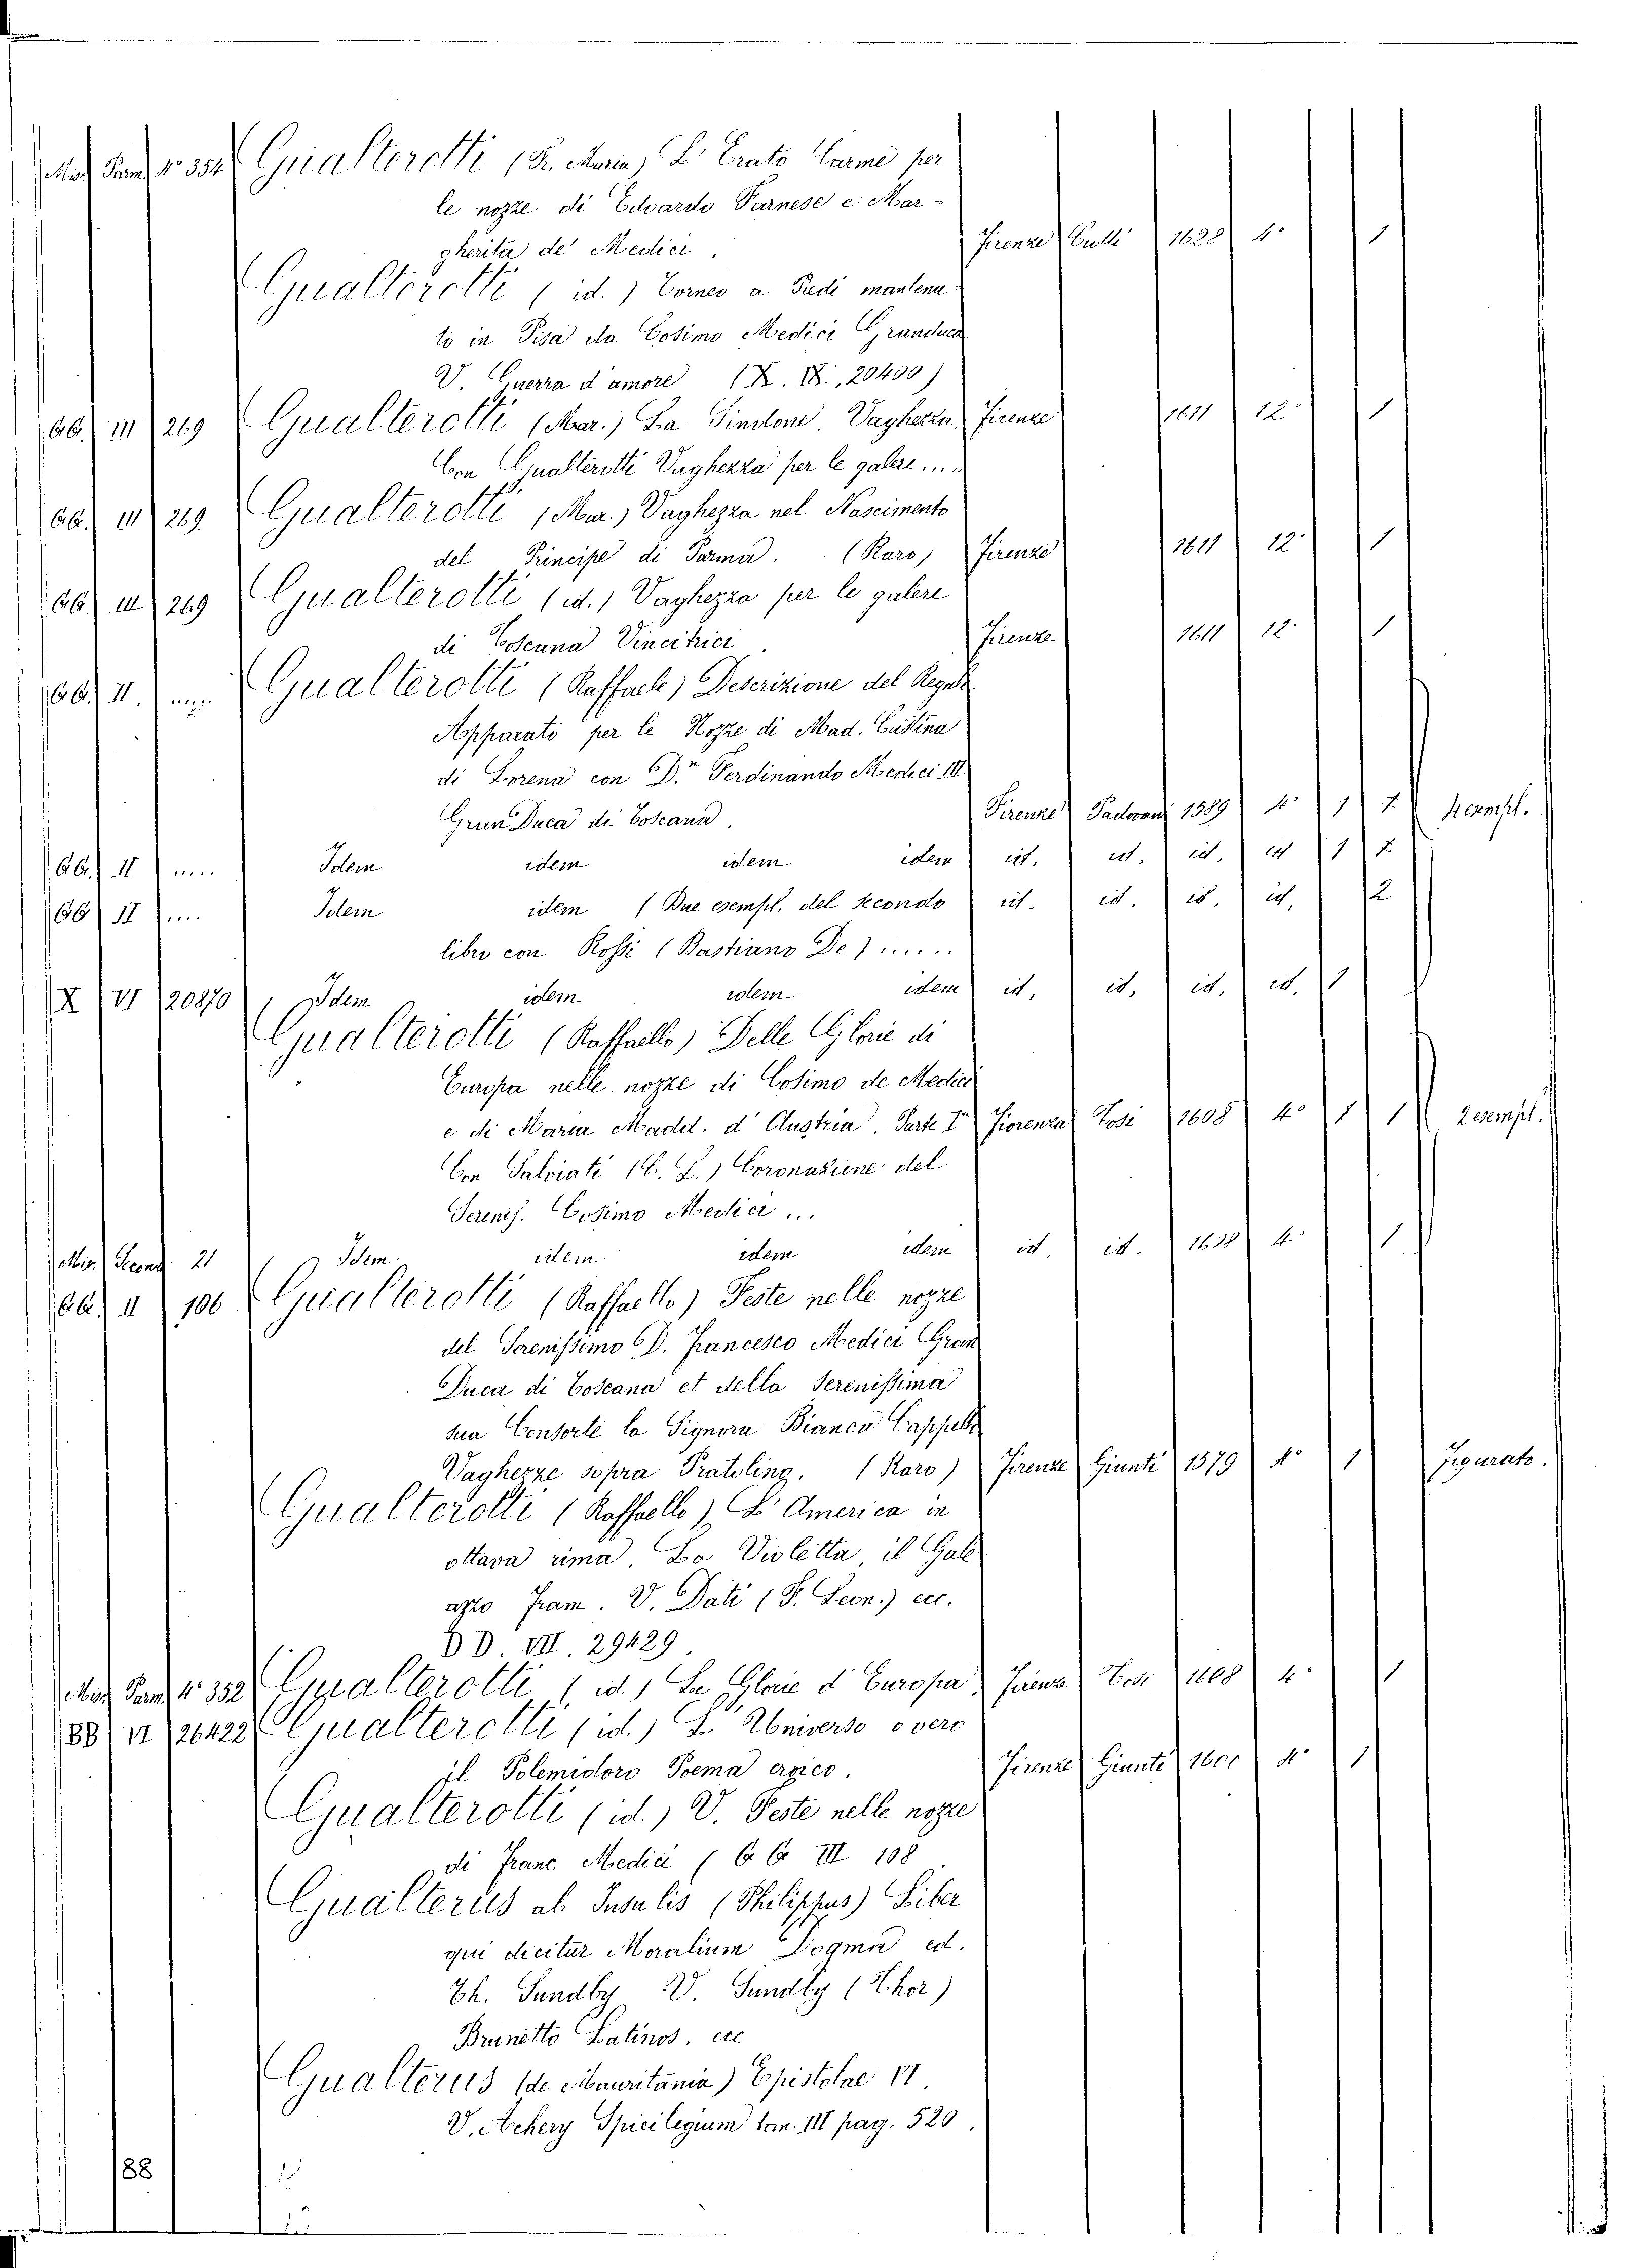 Gualterotti (F. Maria) L' Erato Carme per
le nozze di Edoardo Farnese e Mar-
gherita de' Medici. Firenze 1628 4° 1
Gualterotti (id.) Torneo a Piedi mantenu-
to in Pisa da Cosimo Medici Granduca
V. Guerra d'amore (X. IX. 20400)
GG. III 269 Gualterotti (Mar.) La Sindone. Vaghezza. Firenze 1611 12° 1
Con Gualterotti Vaghezza per le galere....
GG. III 269 Gualterotti (Mar.) Vaghezza nel Nascimento
del Principe di Parma. (Raro) Firenze 1611 12° 1
GG. III 269 Gualterotti (id.) Vaghezza per le galere
di Toscana Vincitrici. Firenze 1611 12° 1
GG. II. .... Gualterotti (Raffaele) Descrizione del Regale
Apparato per le Nozze di Mad. Cristina
di Lorena con D.n Ferdinando Medici III
Gran Duca di Toscana. Firenze Padovani 1589 4° 1 2 exempl.
GG. II .... Idem idem idem idem id. id. id. id. 1 2
GG II .... Idem idem (Due esempl. del secondo id. id. id. id. 2
libro con Rossi (Bastiano De) ......
X VI 20870 Idem idem idem idem id. id. id. id. 1
Gualterotti (Raffaello) Delle Glorie di
Europa nelle nozze di Cosimo de Medici
e di Maria Madd. d'Austria. Parte I.a Fiorenza Tosi 1608 4° 1 1 2 exempl.
Con Salviati (C. L.) Coronazione del
Sereniss. Cosimo Medici ...
Second. 21 Idem idem idem idem id. id. 1608 4° 1
GG. II 106 Gualterotti (Raffaello) Feste nelle nozze
del Serenissimo D. Francesco Medici Gran
Duca di Toscana et della Serenissima
sua Consorte la Signora Bianca Cappello
Vaghezze sopra Pratolino. (Raro) Firenze Giunti 1579 4° 1 Figurato.
Gualterotti (Raffaello) L'America in
ottava rima. La Violetta, il Gal
azzo Fram. V. Dati (F. Leon.) ecc.
DD. VII. 29429.
Pam. 4° 352 Gualterotti (id.) Le Glorie d'Europa. Firenze Tosi 1608 4° 1
BB VI 26422 Gualterotti (id.) L'Universo overo
il Polemidoro Poema eroico. Firenze Giunti 1600 4° 1
Gualterotti (id.) V. Feste nelle nozze
di Franc. Medici (GG III 108
Gualterus ab Insulis (Philippus) Liber
qui dicitur Moralium Dogma ed.
Th. Sundby V. Sundby (Thor)
Brunetto Latinos. ecc
Gualterus (de Mauritania) Epistolae VI.
V. Achery Spicilegium tom. III pag. 520.
188